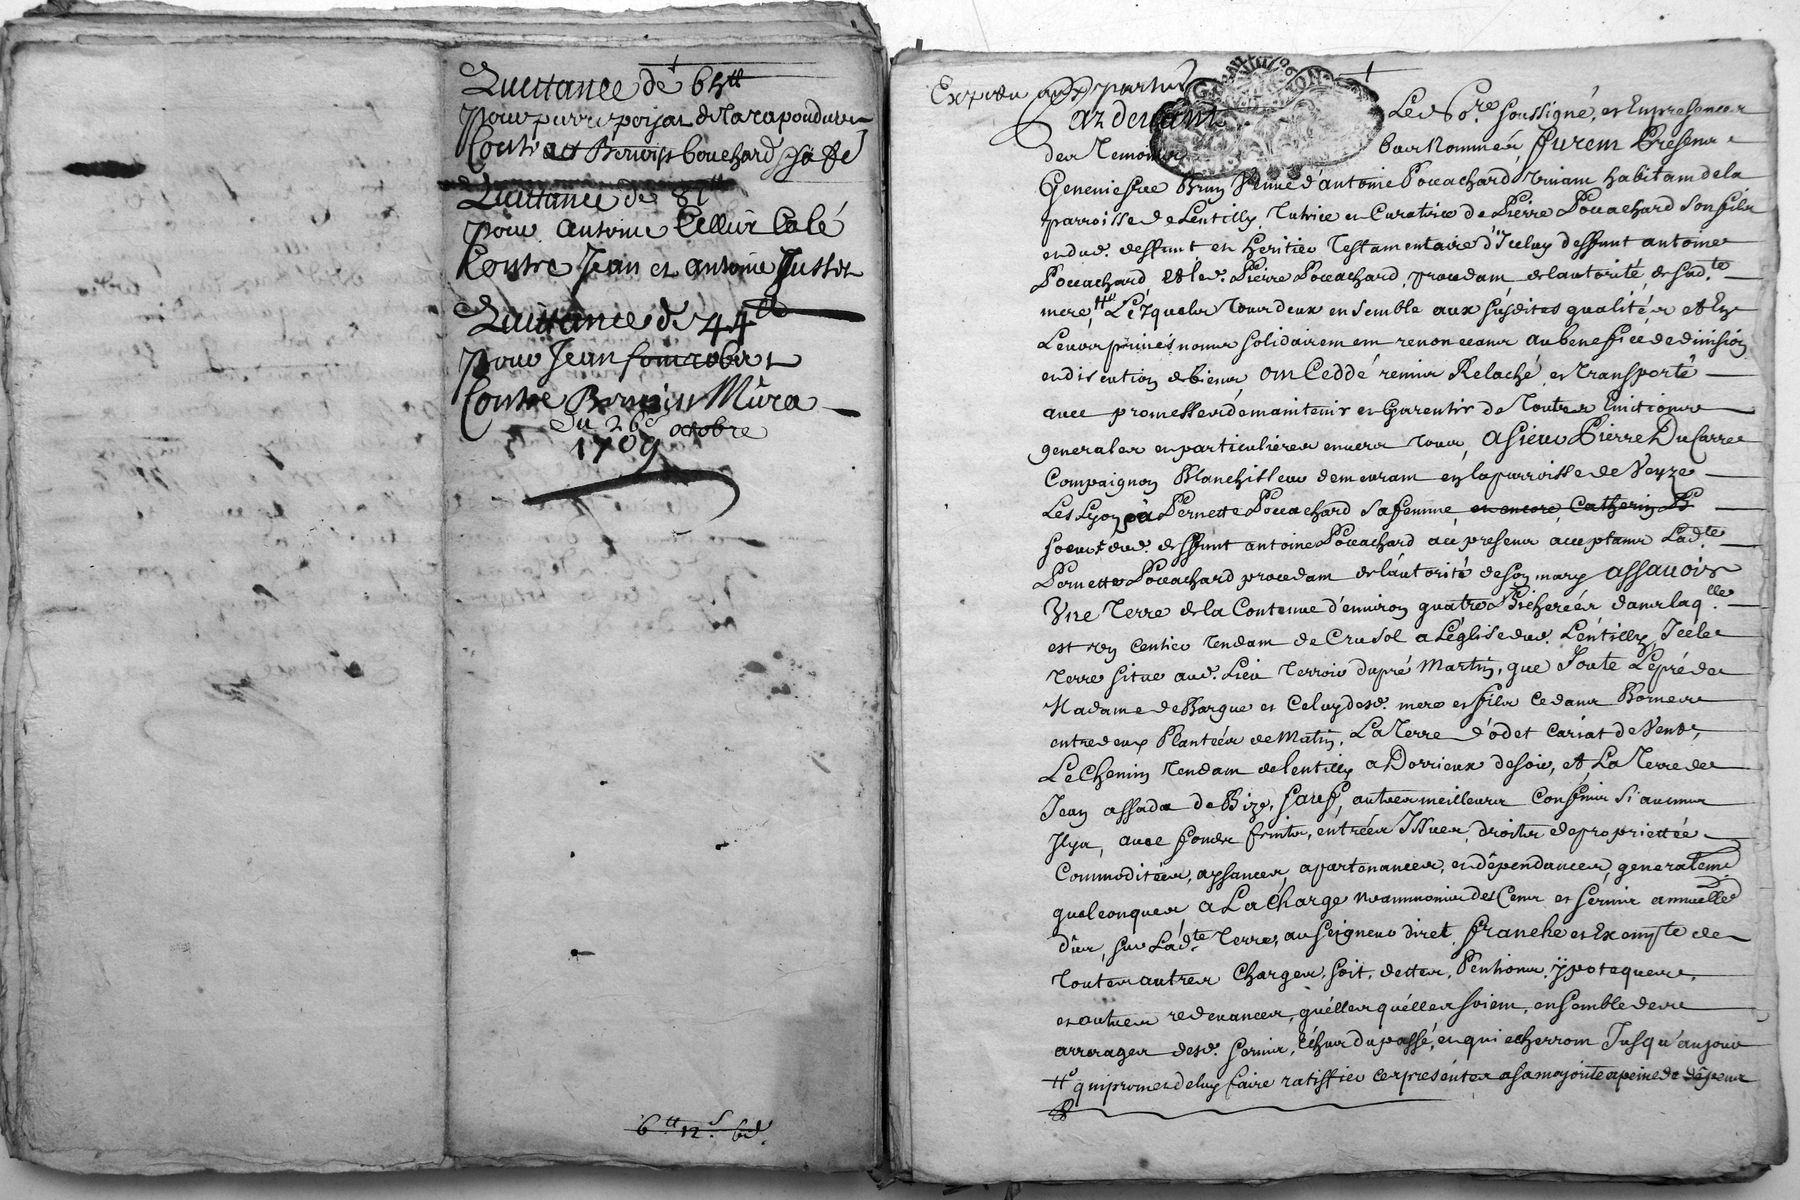 Quittance de 65tt
pour pierre poijat
Contre Benoist bouchard
Quittance de 81tt
pour Antoine Tellier
Contre Jean et antoine
Quittance de 44tt
pour Jean fontrobert
Contre Benoist Mura
Du 26e octobre
1709
6tt 12s 6d.
Expedie aux parties
Le No.re soussigné, et En presence
des Temoins bas Nommés, furent Presents
Geneviefve Brun Veuve d'antoine Pouachard vivant habitant de la
parroisse de Lentilly, Tutrice et Curatrice de Pierre Pouachard son fils
et dud. deffunt et heritier Testamentaire d'Iceluy deffunt antoine
Pouachard, Et led. Pierre Pouachard, procedant de lautorité de sad.te
mere, tt Lesquels Tous deux ensemble aux susdites qualités et En
Leurs privés noms solidairement renonceant au benefice de division
et discution de biens ont Ceddé remis Relaché et transporté
avec promesses de maintenir et Garentir de Toutes Evictions
generales et particulieres envers tous, a sieur Pierre DuCarre
Compaignon Blanchisseur demeurant en la parroisse de Veyze
Les Lyon et a Pernette Pouachard sa femme, et encore Catherin P
soeur dud. deffunt antoine Pouachard, acceptants Lad.te
Pernette Pouachard procedant de lautorité de son mary assavoir
Une Terre de la Contenue d'environ quatre Bicherées dans laq.lle
est un sentier tendant de Crusol a Léglise dud. Léntilly Icelle
Terre situe aud. Lieu Terroir du pré Martin, que Joute Le pré de
Madame de Bargue et Celuy desd. mere et fils cedants Bornes
entredeux Plantées de Matin, La Terre d'odet cariat de Vent,
Le Chemin Tendant de lentilly a Dorrieux de soir, et La Terre de
Jean assada de Bize, sauf, autres meilleurs Confins si aucuns
Ilya, avec fonds fruits, entrées Issues, droits de propriettée
Commoditées, aysances, apartenances, et dépendances, generalem.t
quelconques a La Charge Neanmoins des Cens et servis annuelles
dûs, sur Lad.te Terre, au seigneur diret, franche et Exempte de
Toutes autres Charges, soit, dettes, Pentions, ypoteques,
et autres redevances, quélles quélles soient, ensemble des
arrerages desd. servis, Echus du passé, et qui echerront Jusqu'aujour
tt qui promet de luy faire ratiffier ces presentes a sa majorite a peine de dépens